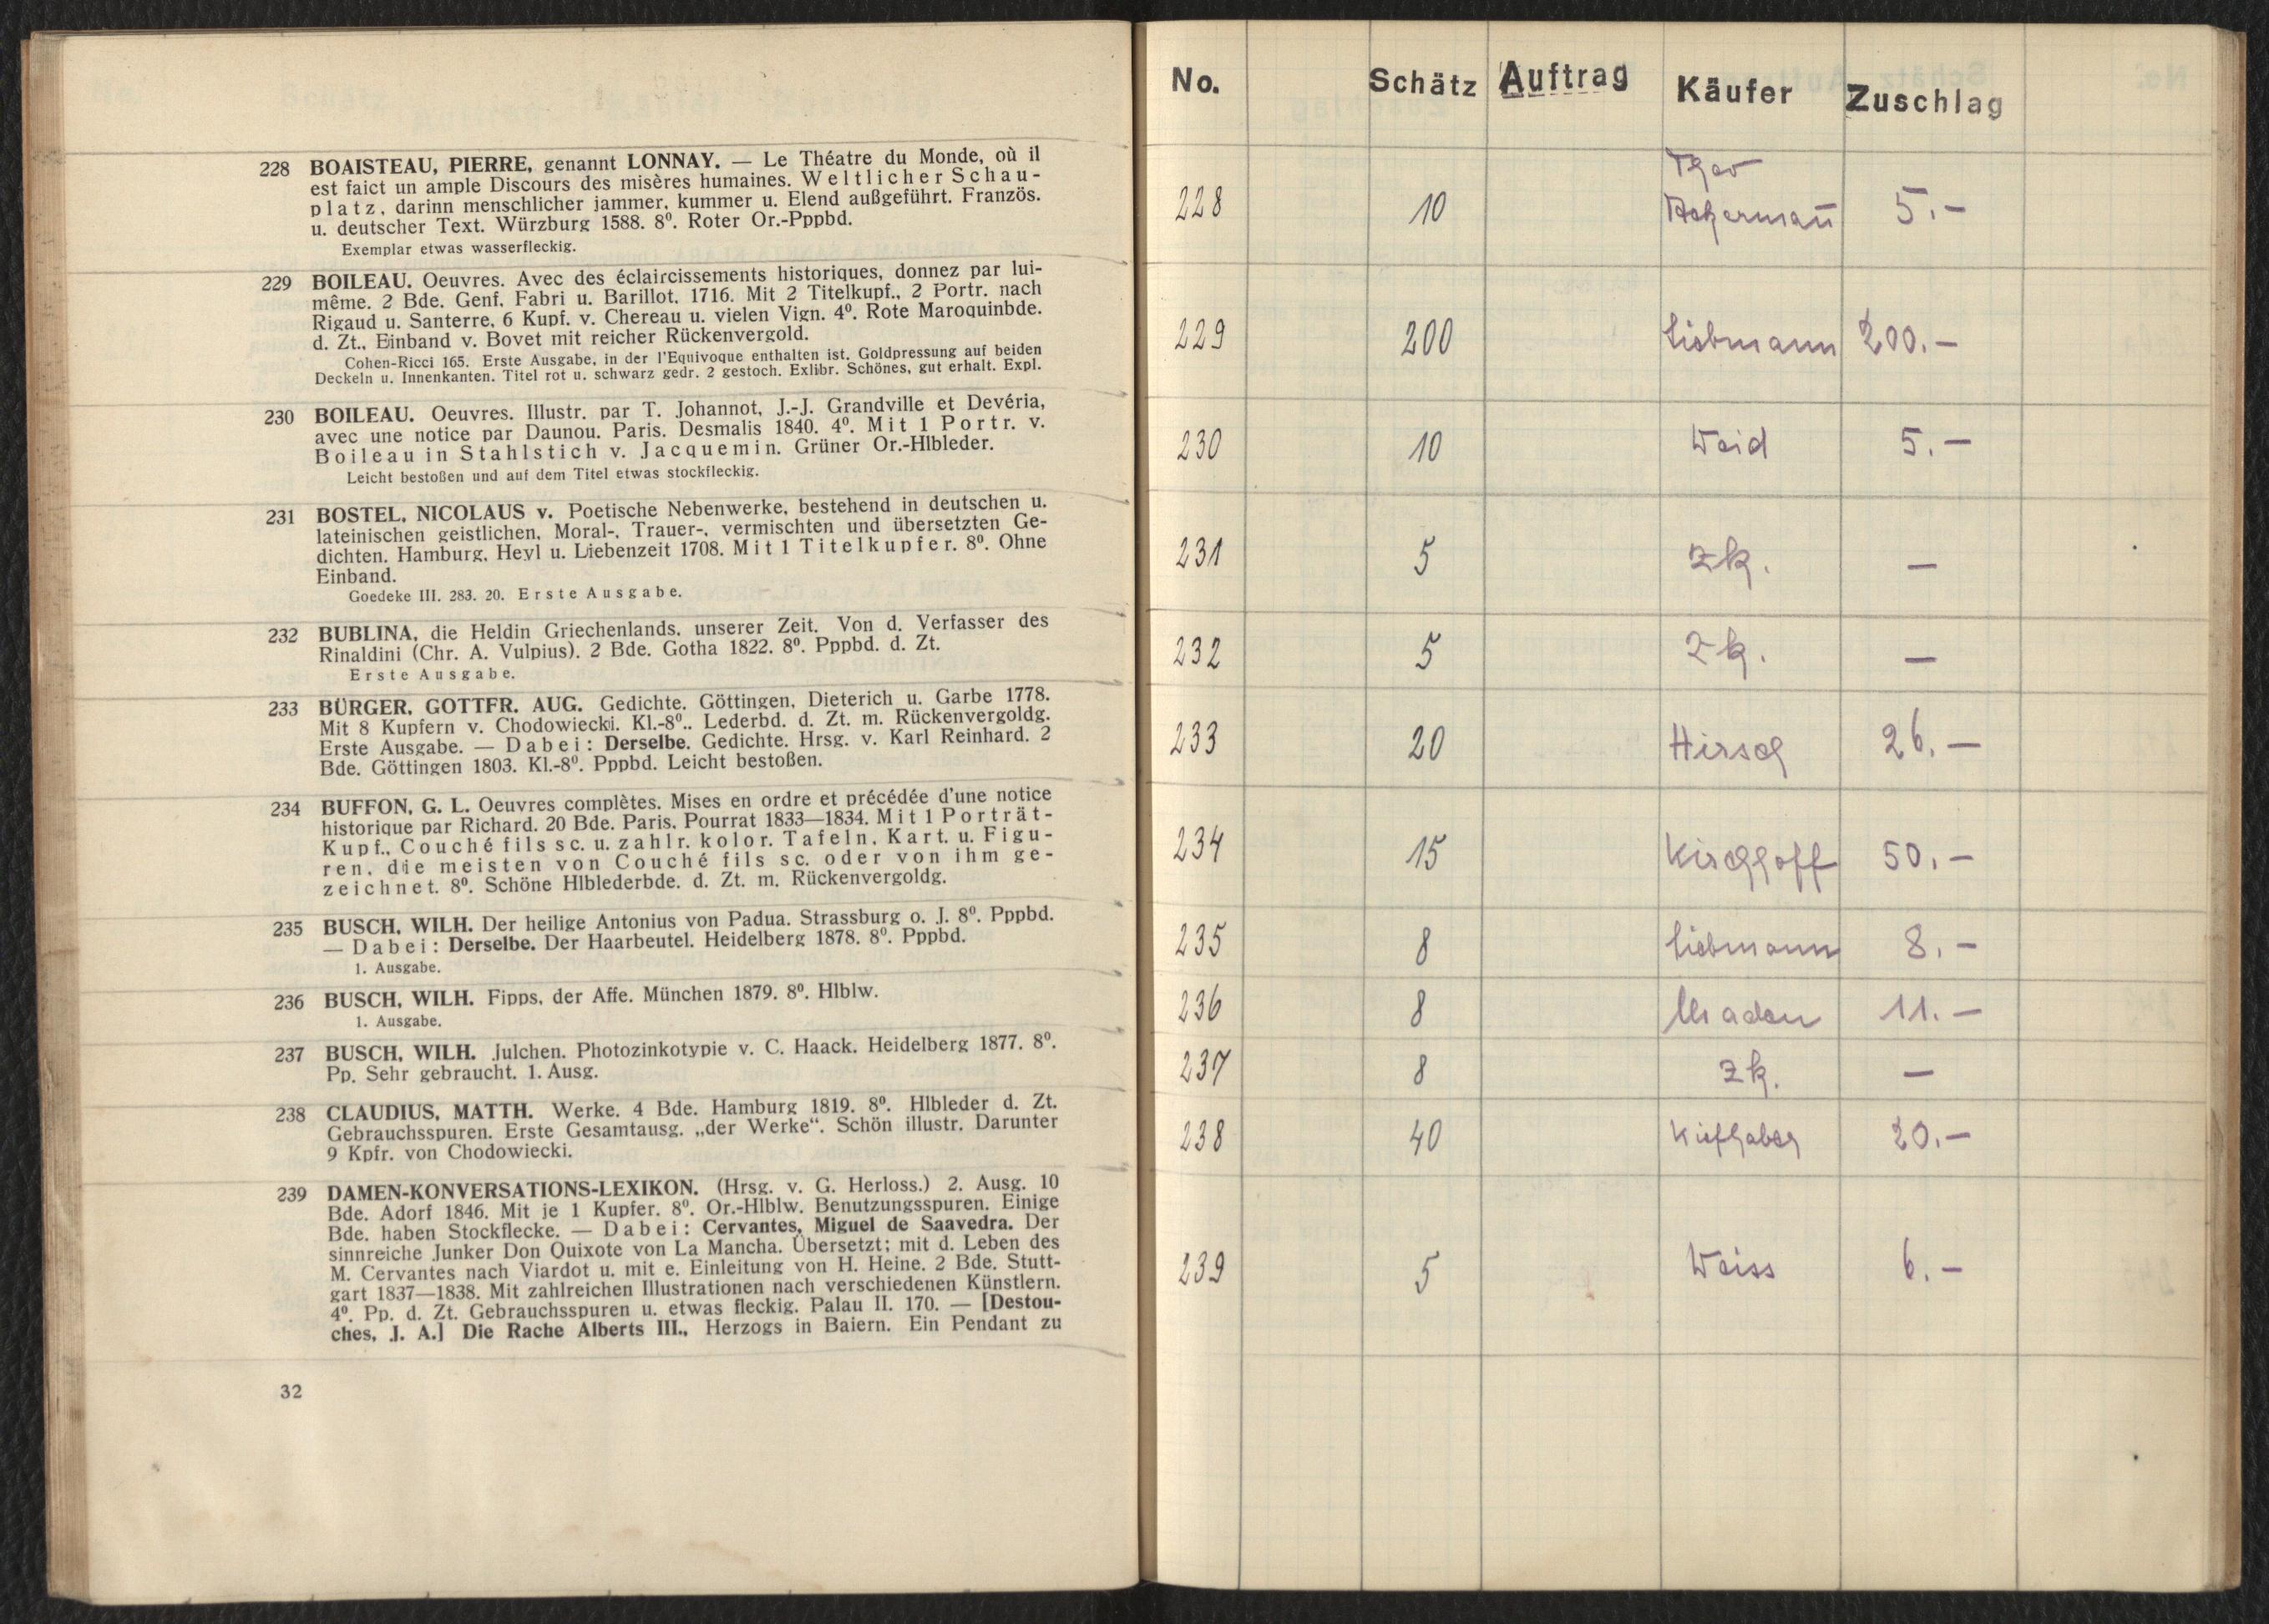 228 BOAISTEAU, PIERRE, genannt LONNAY. — Le Théatre du Monde, où il
est faict un ample Discours des misères humaines. Weltlicher Schau-
platz, darinn menschlicher jammer, kummer u. Elend außgeführt. Französ.
u. deutscher Text. Würzburg 1588. 8⁰. Roter Or.-Pppbd.
Exemplar etwas wasserfleckig.
229 BOILEAU. Oeuvres. Avec des éclaircissements historiques, donnez par lui-
même. 2 Bde. Genf, Fabri u. Barillot. 1716. Mit 2 Titelkupf., 2 Portr. nach
Rigaud u. Santerre, 6 Kupf. v. Chereau u. vielen Vign. 4⁰. Rote Maroquinbde.
d. Zt., Einband v. Bovet mit reicher Rückenvergold.
Cohen-Ricci 165. Erste Ausgabe, in der l'Equivoque enthalten ist. Goldpressung auf beiden
Deckeln u. Innenkanten. Titel rot u. schwarz gedr. 2 gestoch. Exlibr. Schönes, gut erhalt. Expl.
230 BOILEAU. Oeuvres. Illustr. par T. Johannot, J.-J. Grandville et Devéria,
avec une notice par Daunou. Paris. Desmalis 1840. 4⁰. Mit 1 Portr. v.
Boileau in Stahlstich v. Jacquemin. Grüner Or.-Hlbleder.
Leicht bestoßen und auf dem Titel etwas stockfleckig.
231 BOSTEL, NICOLAUS v. Poetische Nebenwerke, bestehend in deutschen u.
lateinischen geistlichen, Moral-, Trauer-, vermischten und übersetzten Ge-
dichten. Hamburg, Heyl u. Liebenzeit 1708. Mit 1 Titelkupfer. 8⁰. Ohne
Einband.
Goedeke III. 283. 20. Erste Ausgabe.
232 BUBLINA, die Heldin Griechenlands. unserer Zeit. Von d. Verfasser des
Rinaldini (Chr. A. Vulpius). 2 Bde. Gotha 1822. 8⁰. Pppbd. d. Zt.
Erste Ausgabe.
233 BÜRGER, GOTTFR. AUG. Gedichte. Göttingen, Dieterich u. Garbe 1778.
Mit 8 Kupfern v. Chodowiecki. Kl.-8⁰.. Lederbd. d. Zt. m. Rückenvergoldg.
Erste Ausgabe. — Dabei: Derselbe. Gedichte. Hrsg. v. Karl Reinhard. 2
Bde. Göttingen 1803. Kl.-8⁰. Pppbd. Leicht bestoßen.
234 BUFFON, G. L. Oeuvres complètes. Mises en ordre et précédée d'une notice
historique par Richard. 20 Bde. Paris. Pourrat 1833—1834. Mit 1 Porträt-
Kupf., Couché fils sc. u. zahlr. kolor. Tafeln, Kart. u. Figu-
ren, die meisten von Couché fils sc. oder von ihm ge-
zeichnet. 8⁰. Schöne Hlblederbde. d. Zt. m. Rückenvergoldg.
235 BUSCH, WILH. Der heilige Antonius von Padua. Strassburg o. J. 8⁰. Pppbd.
— Dabei: Derselbe. Der Haarbeutel. Heidelberg 1878. 8⁰. Pppbd.
1. Ausgabe.
236 BUSCH, WILH. Fipps, der Affe. München 1879. 8⁰. Hlblw.
1. Ausgabe.
237 BUSCH, WILH. Julchen. Photozinkotypie v. C. Haack. Heidelberg 1877. 8⁰.
Pp. Sehr gebraucht. 1. Ausg.
238 CLAUDIUS, MATTH. Werke. 4 Bde. Hamburg 1819. 8⁰. Hlbleder d. Zt.
Gebrauchsspuren. Erste Gesamtausg. „der Werke“. Schön illustr. Darunter
9 Kpfr. von Chodowiecki.
239 DAMEN-KONVERSATIONS-LEXIKON. (Hrsg. v. G. Herloss.) 2. Ausg. 10
Bde. Adorf 1846. Mit je 1 Kupfer. 8⁰. Or.-Hlblw. Benutzungsspuren. Einige
Bde. haben Stockflecke. — Dabei: Cervantes, Miguel de Saavedra. Der
sinnreiche Junker Don Quixote von La Mancha. Übersetzt; mit d. Leben des
M. Cervantes nach Viardot u. mit e. Einleitung von H. Heine. 2 Bde. Stutt-
gart 1837—1838. Mit zahlreichen Illustrationen nach verschiedenen Künstlern.
4⁰. Pp. d. Zt. Gebrauchsspuren u. etwas fleckig. Palau II. 170. — [Destou-
ches, J. A.] Die Rache Alberts III., Herzogs in Baiern. Ein Pendant zu
32
No. Schätz Auftrag Käufer Zuschlag
228 10 5.—
229 200 Liebmann 200.—
230 10 Weid 5.—
231 5 zk. —
232 5 zk. —
233 20 Hirsch 26.—
234 15 Kirchhoff 50.—
235 8 Liebmann 8.—
236 8 11.—
237 8 zk. —
238 40 Kiefhaber 20.—
239 5 Weiss 6.—